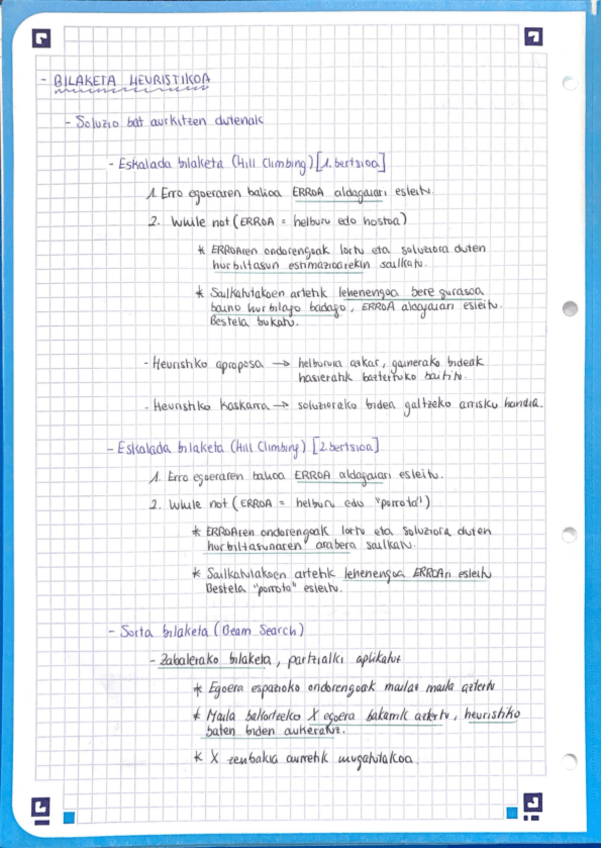 - BILAKETA HEURISTIKOA
- Soluzio bat aurkitzen dutenak
- Eskalada bilaketa (Hill Climbing) [1. bertsioa]
1. Erro egoeraren balioa ERROA aldagaiari esleitu.
2. While not (ERROA = helburu edo hostoa)
* ERROAren ondorengoak lortu eta soluziora duten
hurbiltasun estimazioarekin sailkatu.
* Sailkatutakoen artetik lehenengoa bere gurasoa
baino hurbilago badago, ERROA aldagaiari esleitu.
Bestela bukatu.
- Heuristiko aproposa → helburura azkar, gainerako bideak
hasieratik baztertuko baititu.
- Heuristiko kaskarra → soluziorako bidea galtzeko arrisku handia.
- Eskalada bilaketa (Hill Climbing) [2. bertsioa]
1. Erro egoeraren balioa ERROA aldagaiari esleitu.
2. While not (ERROA = helburu edo "porrota")
* ERROAren ondorengoak lortu eta soluziora duten
hurbiltasunaren arabera sailkatu.
* Sailkatutakoen artetik lehenengoa ERROAri esleitu
Bestela "porrota" esleitu.
- Sorta bilaketa (Beam Search)
- Zabalerako bilaketa, partzialki aplikatuz
* Egoera espazioko ondorengoak mailaz maila aztertu
* Maila bakoitzeko X egoera bakarrik aztertu, heuristiko
baten bidez aukeratuz.
* X zenbakia aurretik mugatutakoa.